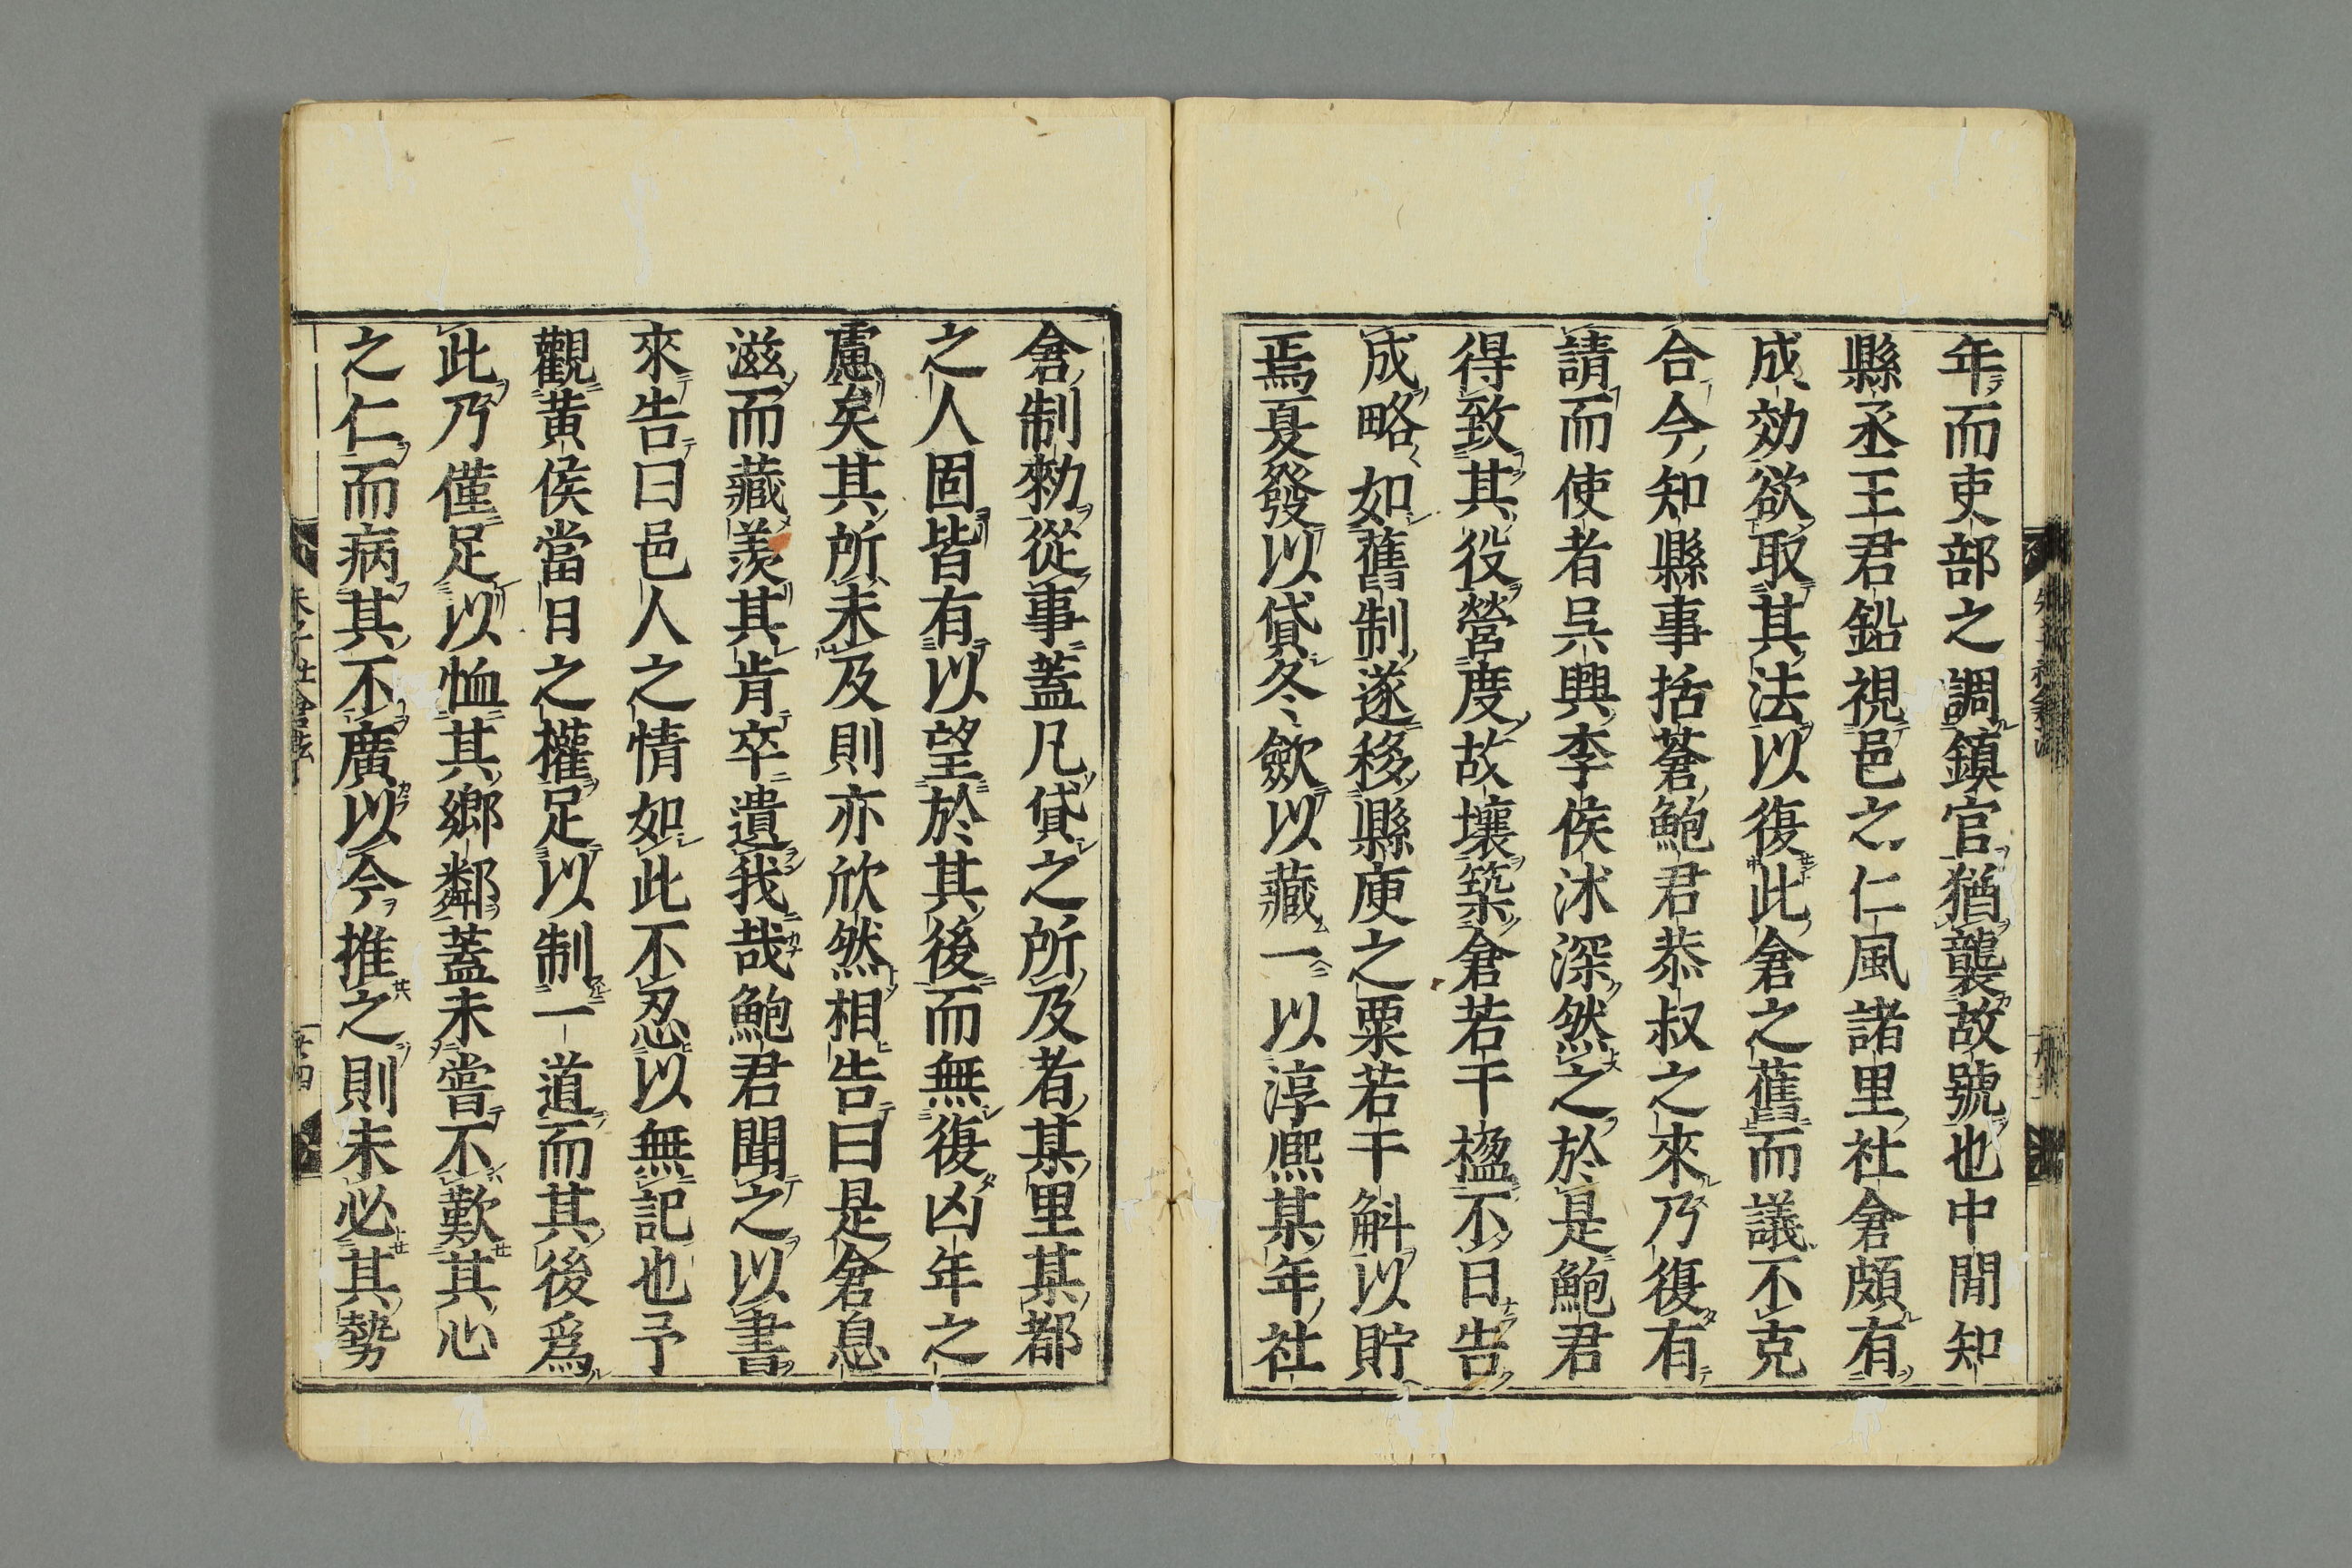 年而吏部之調鎮官猶襲故號也中間知
縣丞王君鉛視邑之仁風諸里社倉頗有
成効欲取其法以復此倉之舊而議不克
合今知縣事括蒼鮑君恭叔之來乃復有
請而使者吳興李侯沐深然之於是鮑君
得致其役營度故壤築倉若干楹不日告
成略如舊制遂移縣庾之粟若干斛以貯
焉夏發以貸冬斂以藏一以淳熈某年社
倉制勑從事蓋凡貸之所及者某里某都
之人固皆有以望於其後而無復凶年之
慮矣其所未及則亦欣然相告曰是倉息
滋而藏羨其肯卒遺我哉鮑君聞之以書
來告曰邑人之情如此不忍以無記也予
觀黃侯當日之權足以制一道而其後爲
此乃僅足以恤其鄉鄰蓋未嘗不歎其心
之仁而病其不廣以今推之則未必其勢